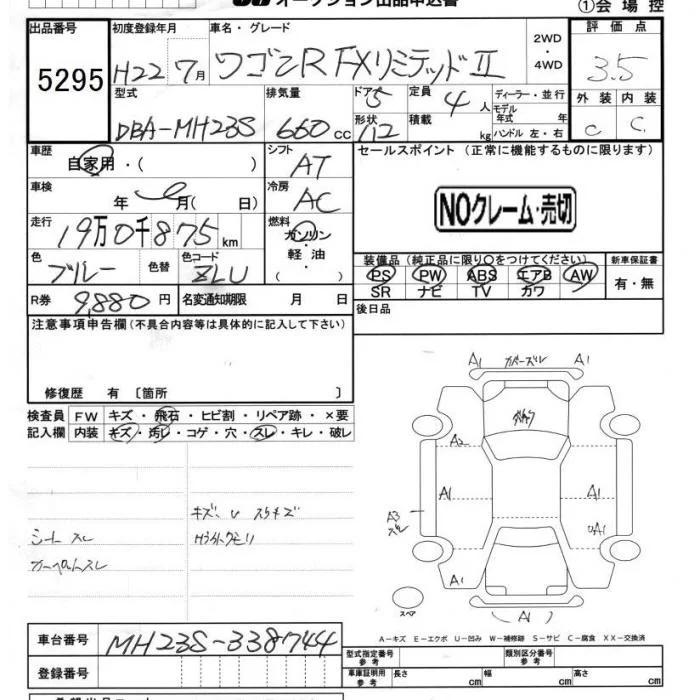 オークション出品申込書
①会場控
出品番号 初度登録年月 車名・グレード 2WD ・ 4WD 評価点
5295 H22 7月 ワゴンR FXリミテッドⅡ 3.5
型式 排気量 ドア 5 定員 4人 ディーラー・並行 外装 内装
DBA-MH23S 660cc 形状 1/2 積載 kg モデル年式 年 ハンドル 左・右 C C
車歴 自家用・( ) シフト AT セールスポイント (正常に機能するものに限ります)
車検 年 月( 日) 冷房 AC NOクレーム・売切
走行 19万0千875km 燃料 ガソリン・軽油・( )
色 ブルー 色替 色コード ZLU 装備品(純正品に限り○をつけてください) 新車保証書
PS PW ABS エアB AW 有・無
SR ナビ TV カワ
R券 9,880円 名変通知期限 月 日 後日品
注意事項申告欄(不具合内容等は具体的に記入して下さい)
修復歴 有 〔箇所 〕
検査員 FW キズ・飛石・ヒビ割・リペア跡・×要
記入欄 内装 キズ・汚レ・コゲ・穴・スレ・キレ・破レ
A1 カバーズレ A1
A2
A1 A1
A3 ズレ
UA1
A1
A1
スペア
シートスレ
カーペットスレ
A-キズ E-エクボ U-凹み W-補修跡 S-サビ C-腐食 XX-交換済
車台番号 MH23S-338744 型式指定番号 参考 類別区分番号 参考
登録番号 車庫証明用 参考 長さ cm 幅 cm 高さ cm